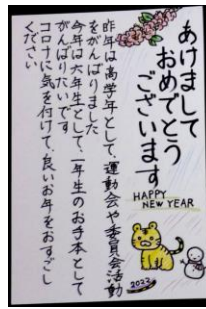 あけまして
おめでとう
ございます
HAPPY
NEW YEAR
2022
昨年は高学年として、運動会や委員会活動
をがんばりました
今年は六年生として、一年生のお手本として
がんばりたいです。
コロナに気を付けて、良いお年をおすごし
ください